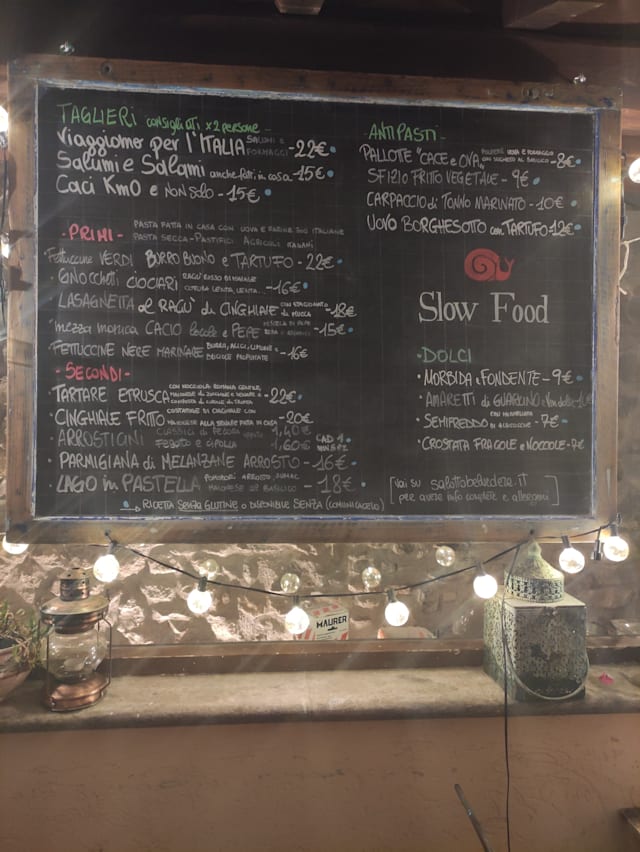 TAGLIERI consigliati x 2 persone -
Viaggiamo per l'ITALIA SALUMI E FORMAGGI - 22€
Salumi e Salami anche fatti in casa - 15€
Caci Km0 e NON SOLO - 15€
- PRIMI -
PASTA FATTA IN CASA CON UOVA E FARINE 100% ITALIANE
PASTA SECCA - PASTIFICI AGRICOLI ITALIANI
Fettuccine VERDI BURRO BUONO e TARTUFO - 22€
GNOCCHETTI CIOCIARI RAGÙ ROSSO DI MAIALE
COTTURA LENTA, LENTA - 16€
LASAGNETTA al RAGÙ di CINGHIALE CON STAGIONATO
DI MUCCA - 18€
mezza manica CACIO locale e PEPE MISCELA DI PEPE - 15€
FETTUCCINE NERE MARINARE BURRO, ALICI, LIMONE E
BRICIOLE PROFUMATE - 16€
- SECONDI -
TARTARE ETRUSCA CON NOCCIOLA ROMANA GENTILE,
MAIONESE DI ZUCCHINE E SENAPE E
COMPOSTA DI CIPOLLE DI TROPEA - 22€
CINGHIALE FRITTO COSTATINE DI CINGHIALE CON
MAIONESE ALLA SENAPE FATTA IN CASA - 20€
ARROSTICINI CLASSICI DI PECORA 1,40€
FEGATO E CIPOLLA 1,60€
CAD 1
MIN. 5 PZ
PARMIGIANA di MELANZANE ARROSTO - 16€
LAGO in PASTELLA POMODORI ARROSTO, SUMAC,
MAIONESE DI BASILICO - 18€
RICETTA SENZA GLUTINE O DISPONIBILE SENZA (COMUNICACELO)
ANTIPASTI -
PALLOTE "CACE e OVA" POLPETTE UOVA E FORMAGGIO
CON SUGHETTO AL BASILICO - 8€
SFIZIO FRITTO VEGETALE - 9€
CARPACCIO di TONNO MARINATO - 10€
UOVO BORGHESOTTO con TARTUFO 12€
Slow Food
- DOLCI
MORBIDA e FONDENTE - 9€
AMARETTI di GUARCINO e Non solo
SEMIFREDDO CON MARMELLATA
DI ALBICOCCHE - 7€
CROSTATA FRAGOLE e NOCCIOLE - 7€
[vai su salottobelvedere.it
per avere info complete e allergeni]
MAURER